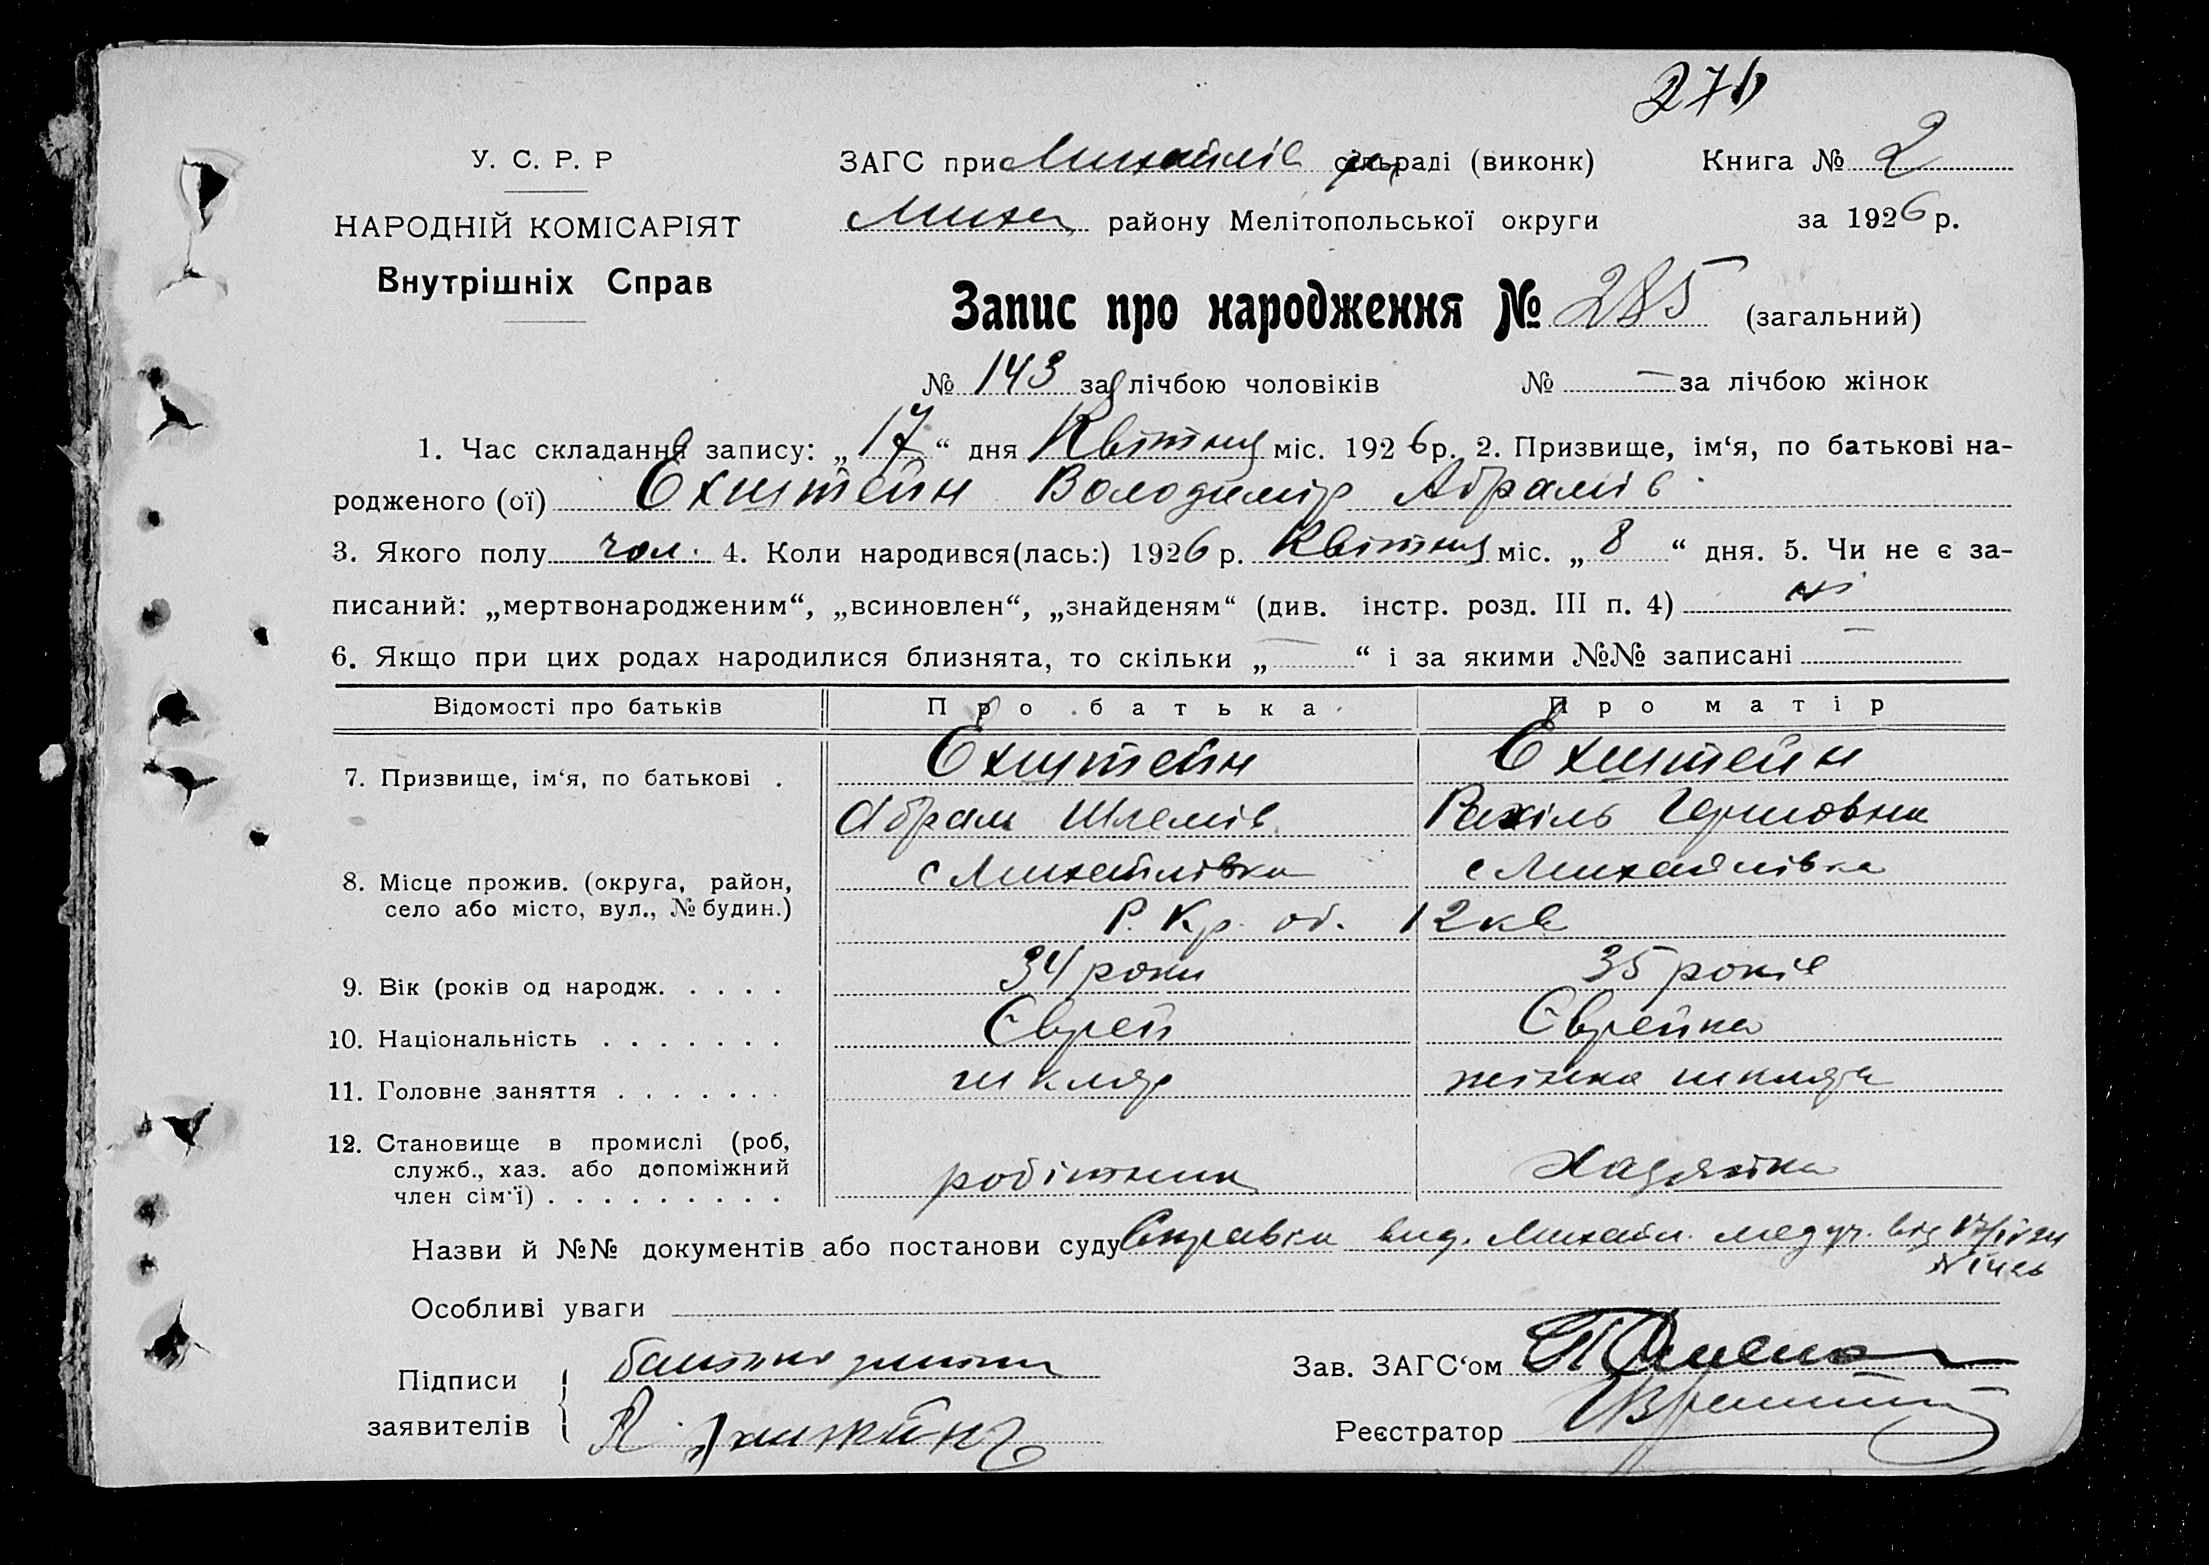 270
У. С. Р. Р
ЗАГС при Михайлів рай сільраді (виконк)
Книга № 2
НАРОДНІЙ КОМІСАРІЯТ
Миха району Мелітопольської округи
за 1926 р.
Внутрішніх Справ
Запис про народження № 285 (загальний)
№ 143 за лічбою чоловіків № — за лічбою жінок
1. Час складання запису: „17“ дня Квітня міс. 1926 р. 2. Призвище, ім‘я, по батькові на-
родженого (ої) Ехштейн Володимір Абрамів
3. Якого полу чол. 4. Коли народився(лась:) 1926 р. Квітня міс. „8“ дня. 5. Чи не є за-
писаний: „мертвонародженим“, „всиновлен“, „знайденям“ (див. інстр. розд. III п. 4) ні
6. Якщо при цих родах народилися близнята, то скільки „—“ і за якими №№ записані —
Відомості про батьків Про батька Про матір
7. Призвище, ім‘я, по батькові . Ехштейн Ехштейн
Абрам Шлемів Рахіль Гершовна
8. Місце прожив. (округа, район, с Михайлівка с Михайлівка
село або місто, вул., № будин.) Р. Кр. об. 12 кв
9. Вік (років од народж. . . . . 34 роки 35 років
10. Національність . . . . . . . Єврей Єврейка
11. Головне заняття . . . . . . . шкляр жінка шкляра
12. Становище в промислі (роб,
служб., хаз. або допоміжний робітник Хазяйка
член сім‘ї) . . . . . . . . .
Назви й №№ документів або постанови суду Справка вид. Михайл. мед уч. від
Особливі уваги
Підписи батько дитини
Зав. ЗАГС‘ом
заявителів
Реєстратор